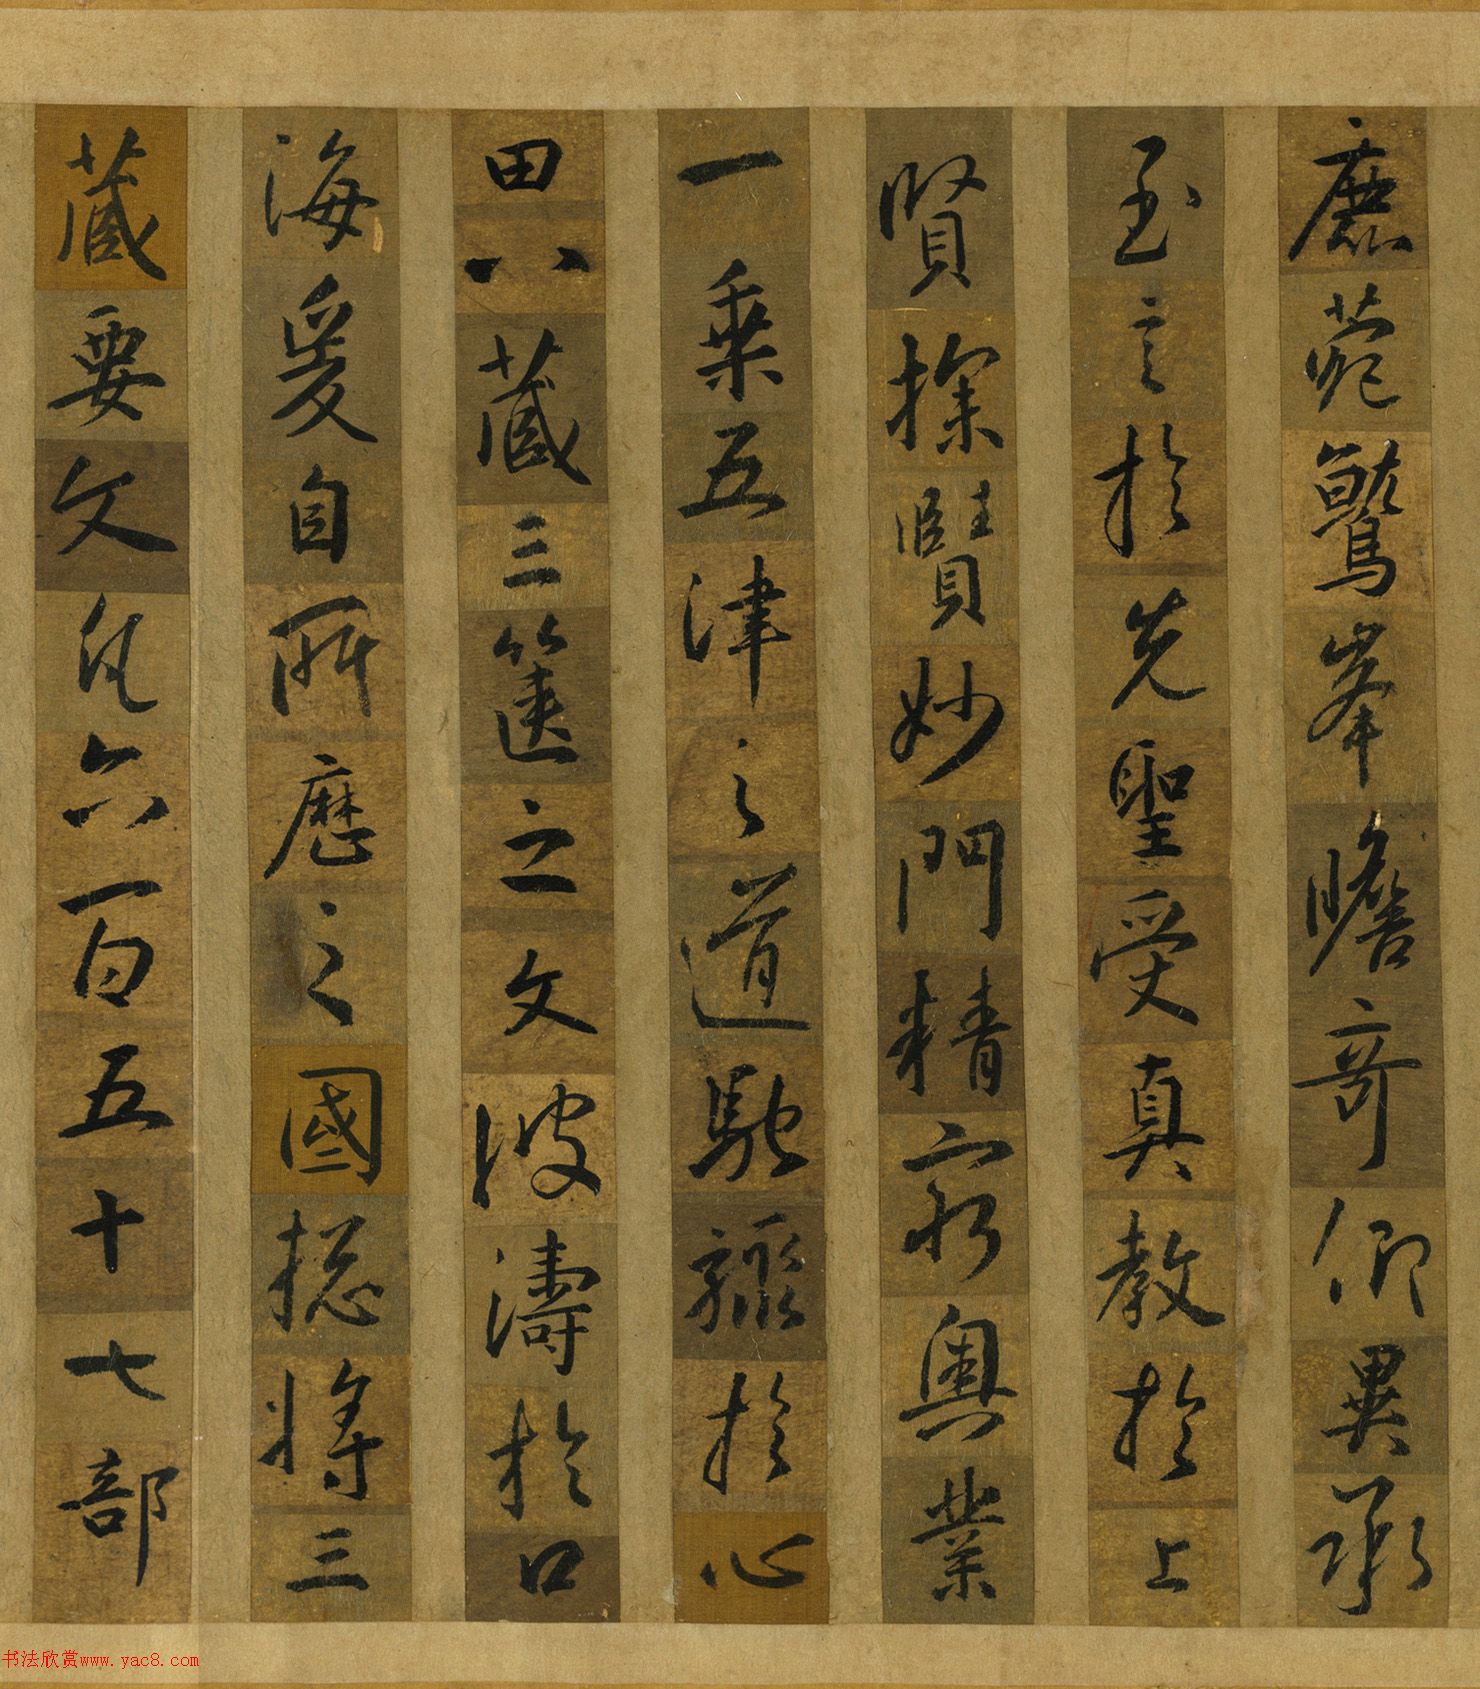 鹿菀鷲峯瞻奇仰異承
至言於先聖受真教於上
賢探賾妙門精窮奧業
一乘五津之道馳驟於心
田八藏三篋之文波濤於口
海爰自所歷之國揔將三
藏要文凡六百五十七部
书法欣赏www.yac8.com